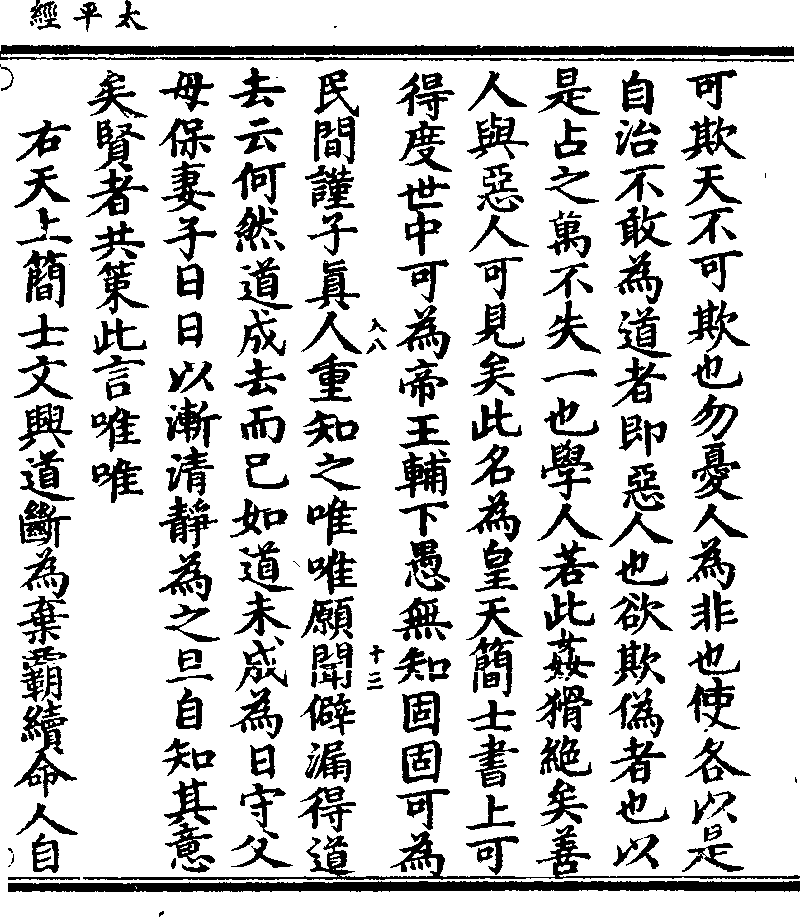 太平經
可欺天不可欺也勿憂人為非也使各以是
自治不敢為道者即惡人也欲欺偽者也以
是占之萬不失一也學人若此姦猾絕矣善
人與惡人可見矣此名為皇天簡士書上可
得度世中可為帝王輔下愚無知固固可為
入八
十二
民間謹子真人重知之唯唯願聞僻漏得道
去云何然道成去而已如道未成為日守父
母保妻子日日以漸清靜為之旦自知其意
矣賢者共策此言唯唯
右天上簡士文興道斷為棄霸續命人自